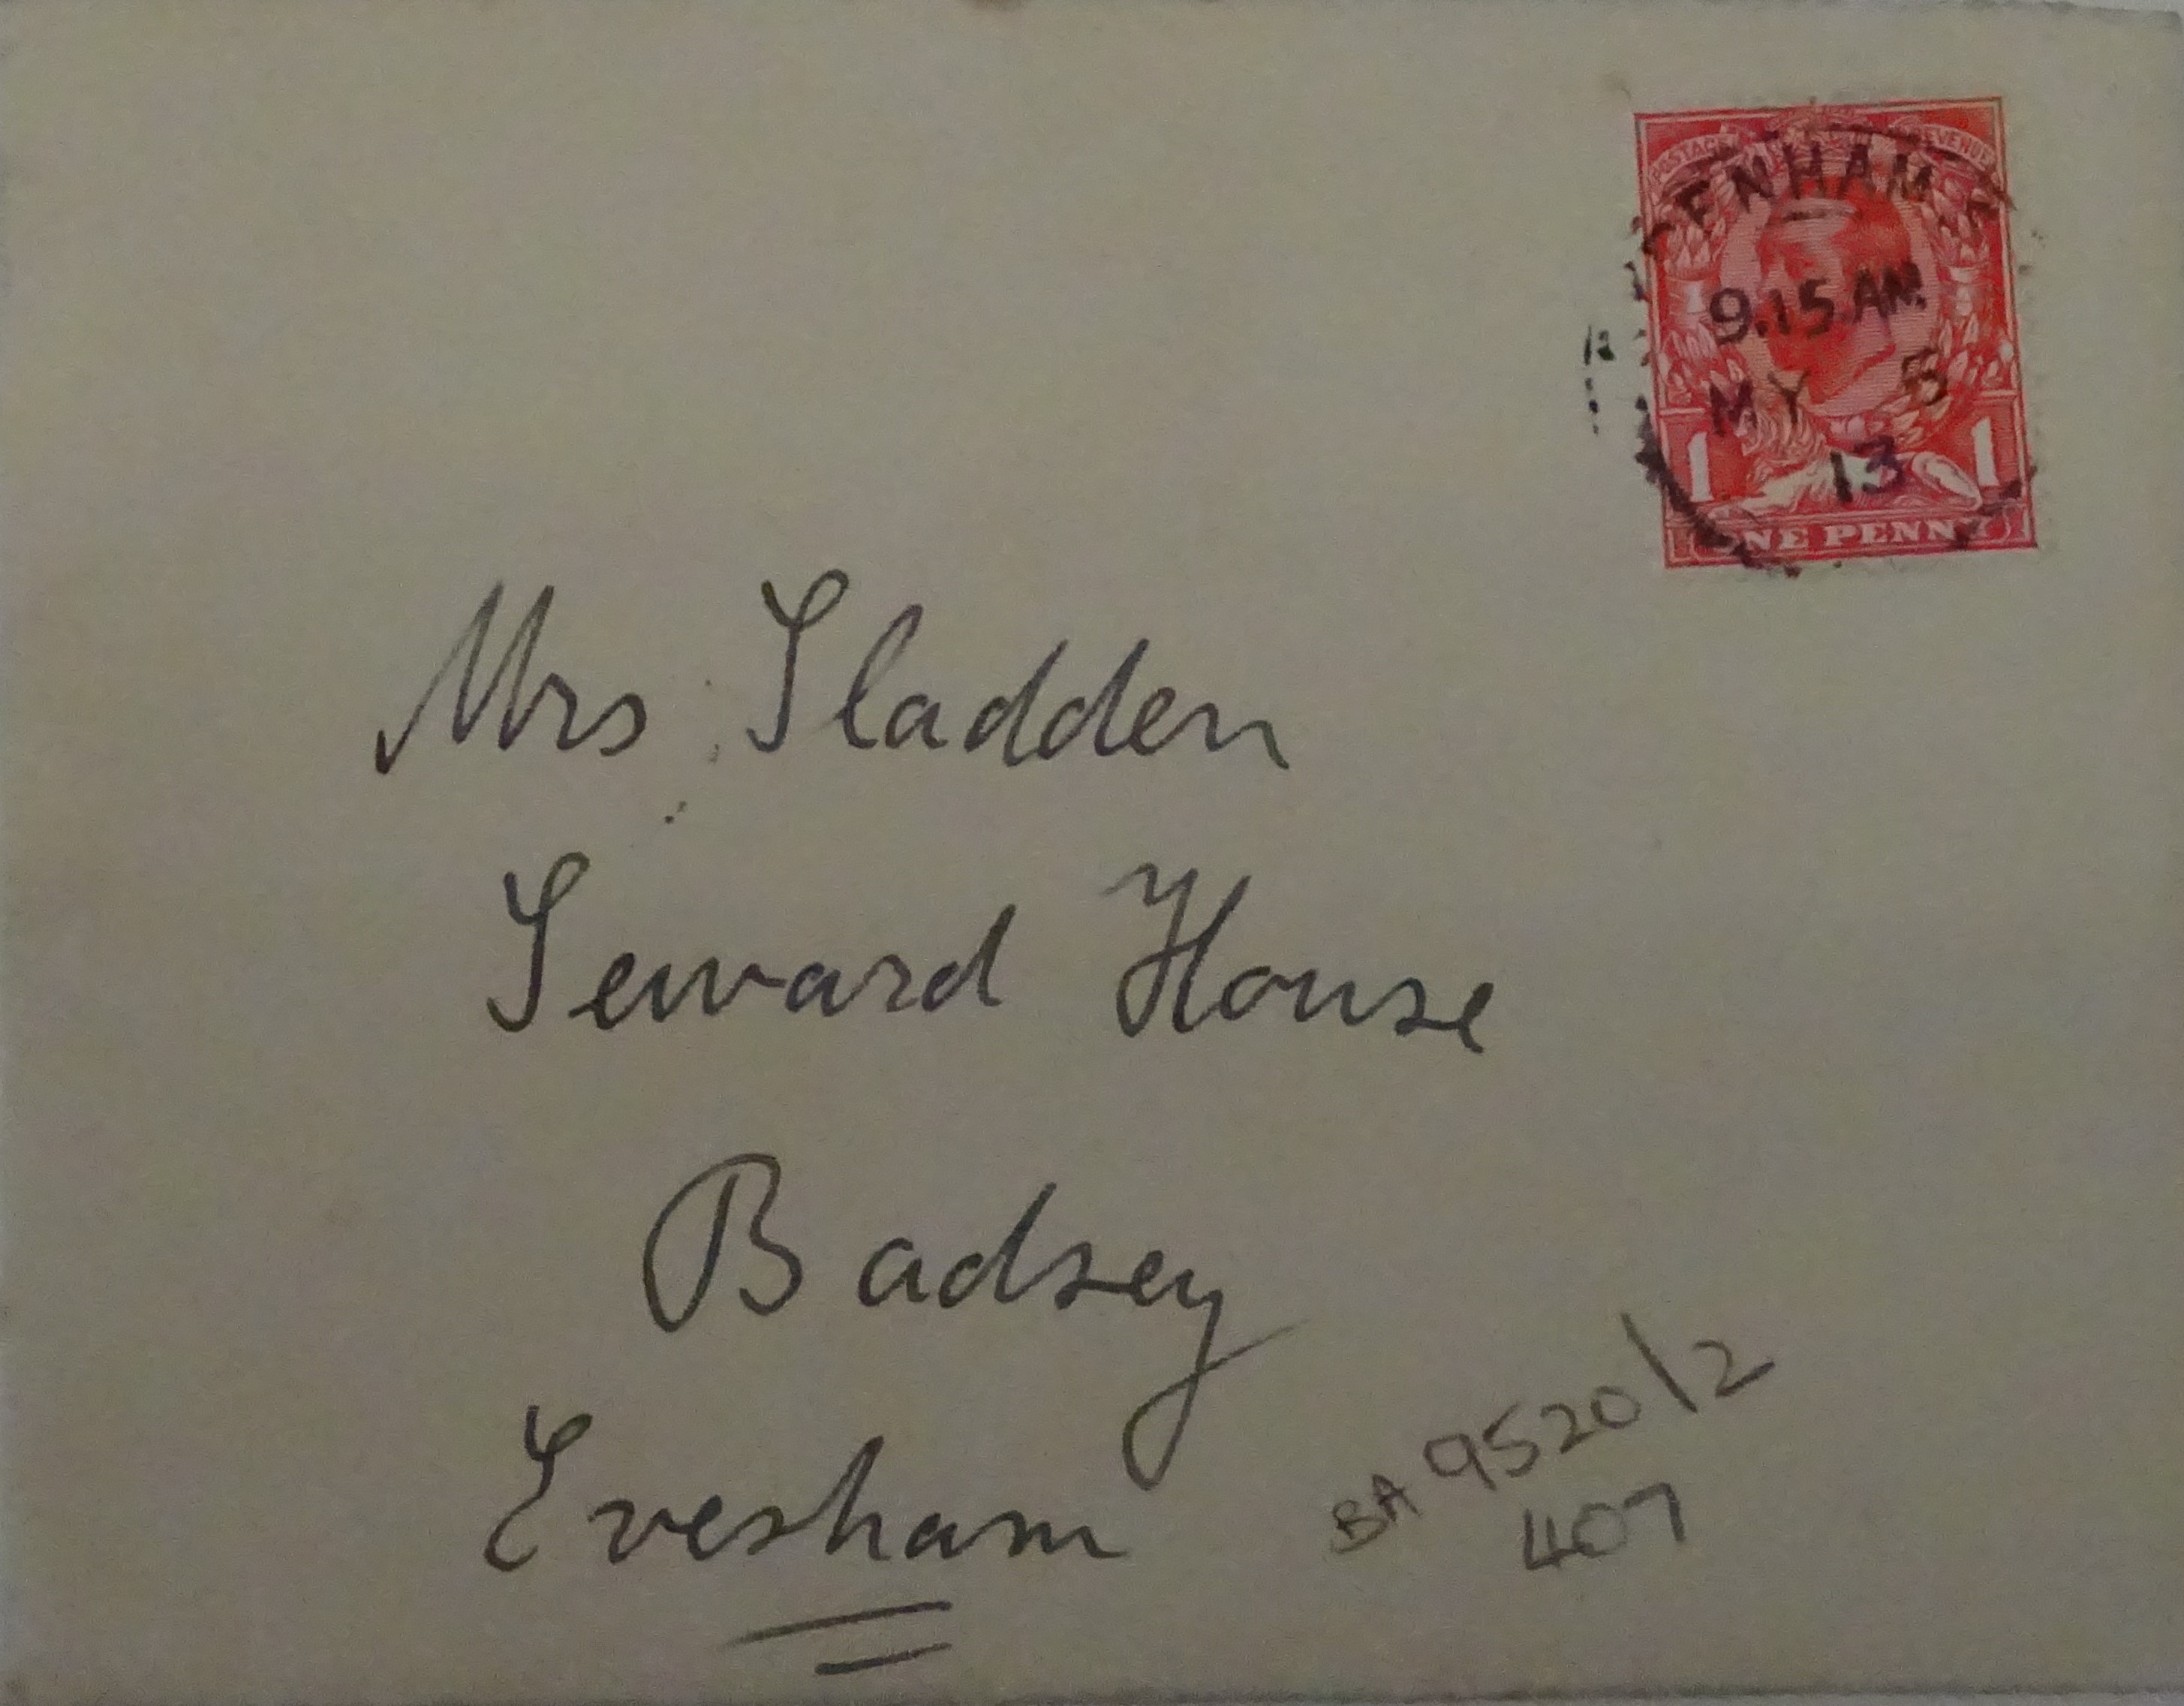 POSTAGE REVENUE
ENHAM
9.15.AM
MY 5
13
1 1
ONE PENNY
Mrs Sladden
Seward House
Badsey
Evesham
BA 9520/2
407